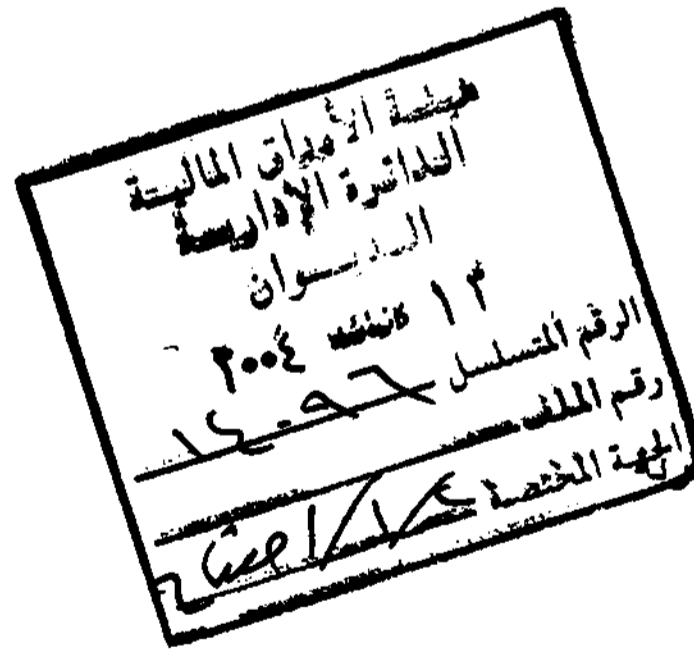 هيئة الأوراق المالية
الدائرة الإدارية
الديوان
١٣ ٢٠٠٤
الرقم المتسلسل ١٤٠٩٦
رقم الملف
الجهة المختصة